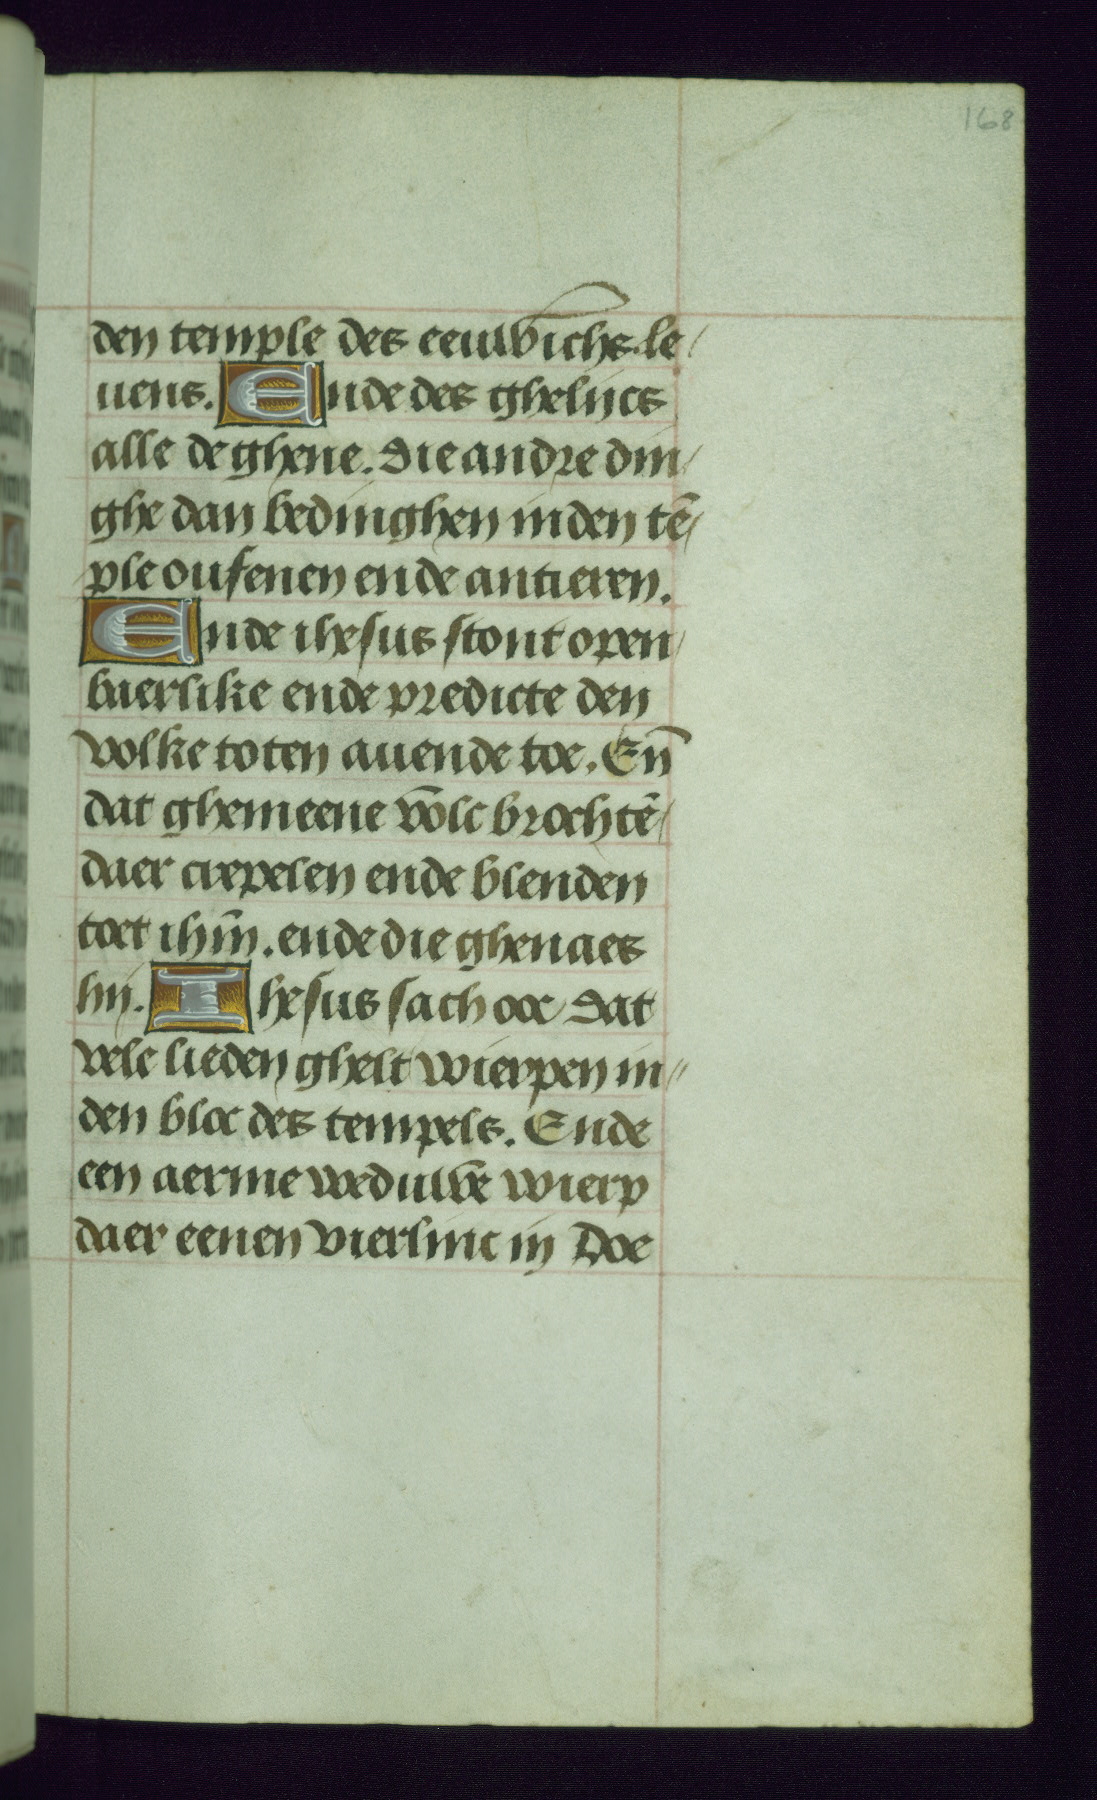 168
den temple des eeuwichs le/
uens. Ende des ghelijcs
alle de ghene. die andre din/
ghe dan bedinghen in den tē/
ple oufenen ende antieren.
Ende ihesus stont open/
baerlike ende predicte den
volke toten auende toe. Eñ
dat ghemeene volc brochtē/
daer crepelen ende blenden
toet ihm̄. ende die ghenaes
hij. Ihesus sach ooc dat
vele lieden ghelt wierpen in//
den bloc des tempels. Ende
een aerme weduwe wierp
daer eenen vierlinc in Doe